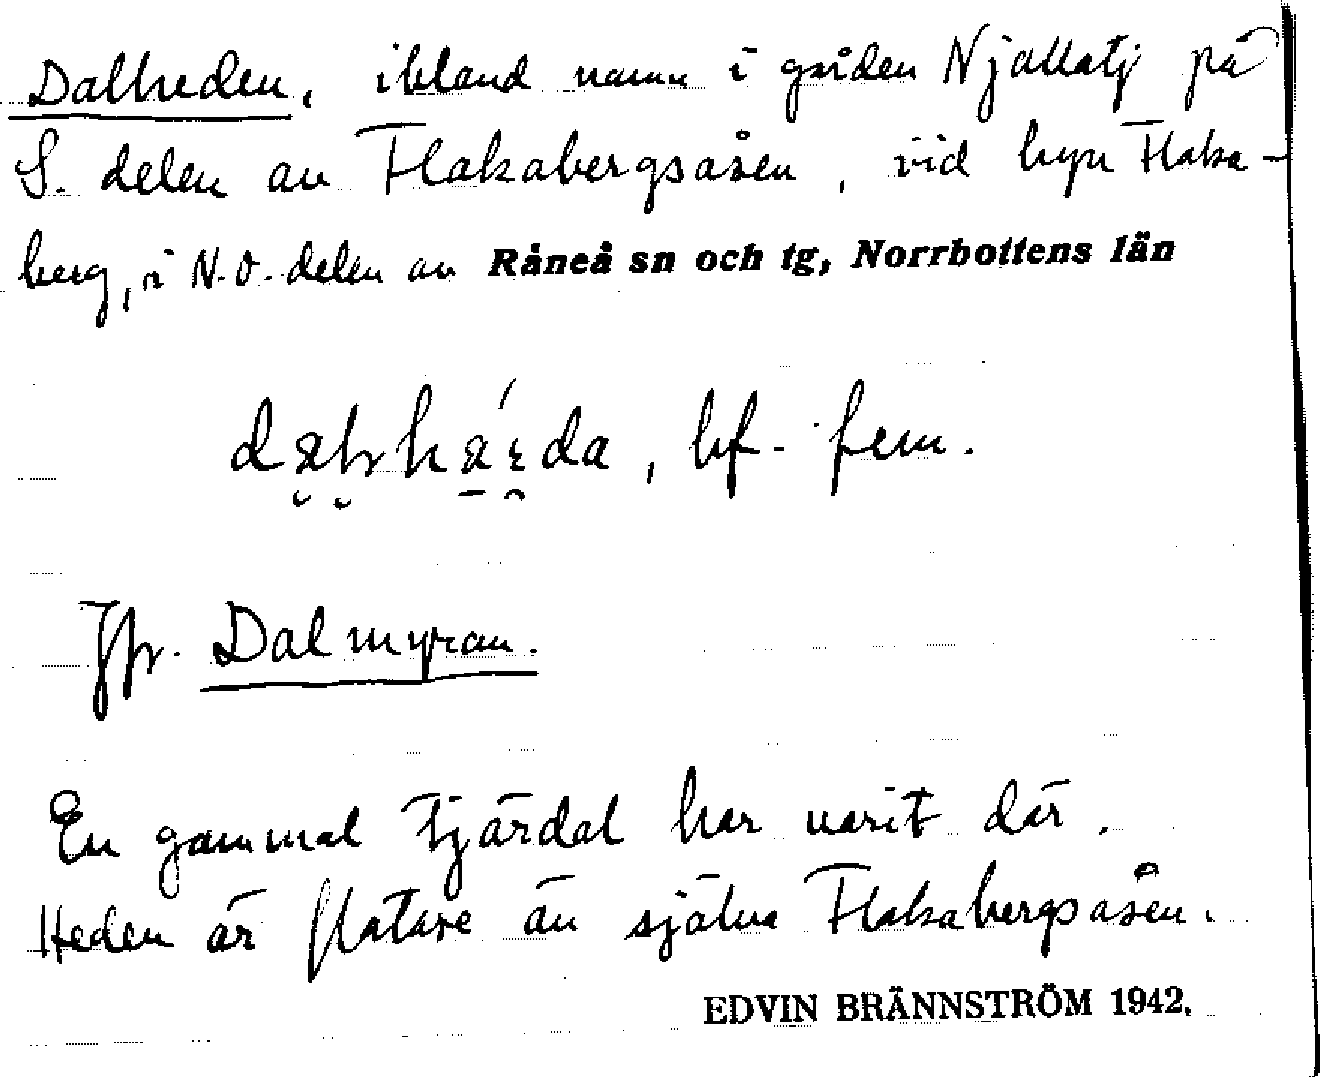 Dalheden, ibland namn i gården Njallatj på
S. delen av Flakabergsåsen, vid byn Flaka-
berg, i N.O. delen av Råneå sn och tg, Norrbottens län
bf. fem.
Jfr. Dalmyran.
En gammal tjärdal har varit där.
Heden är flatare än själva Flakabergsåsen.
EDVIN BRÄNNSTRÖM 1942.